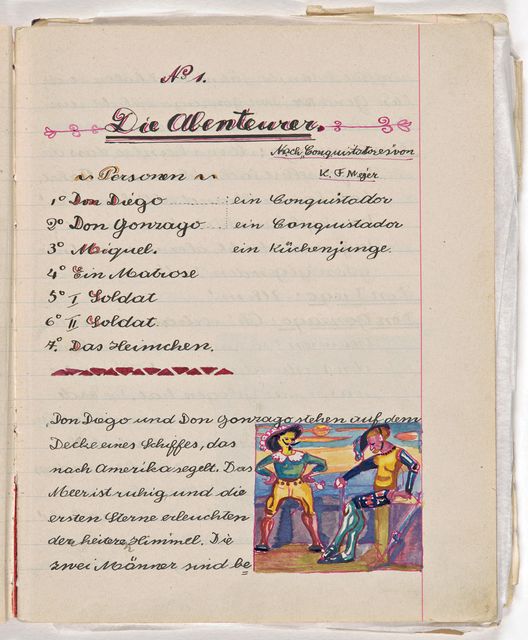 No 1.
Die Abenteurer.
Nach „Conquistadores" von
K. F. Meyer
Personen
1° Don Diego ein Conquistador
2° Don Gonzago ein Conquistador
3° Miguel. ein Küchenjunge.
4° Ein Matrose
5° I Soldat
6° II Soldat.
7° Das Heimchen.
Don Diego und Don Gonzago stehen auf dem
Decke eines Schiffes, das
nach Amerika segelt. Das
Meer ist ruhig und die
ersten Sterne erleuchten
den heitere Himmel. Die
zwei Männer sind be